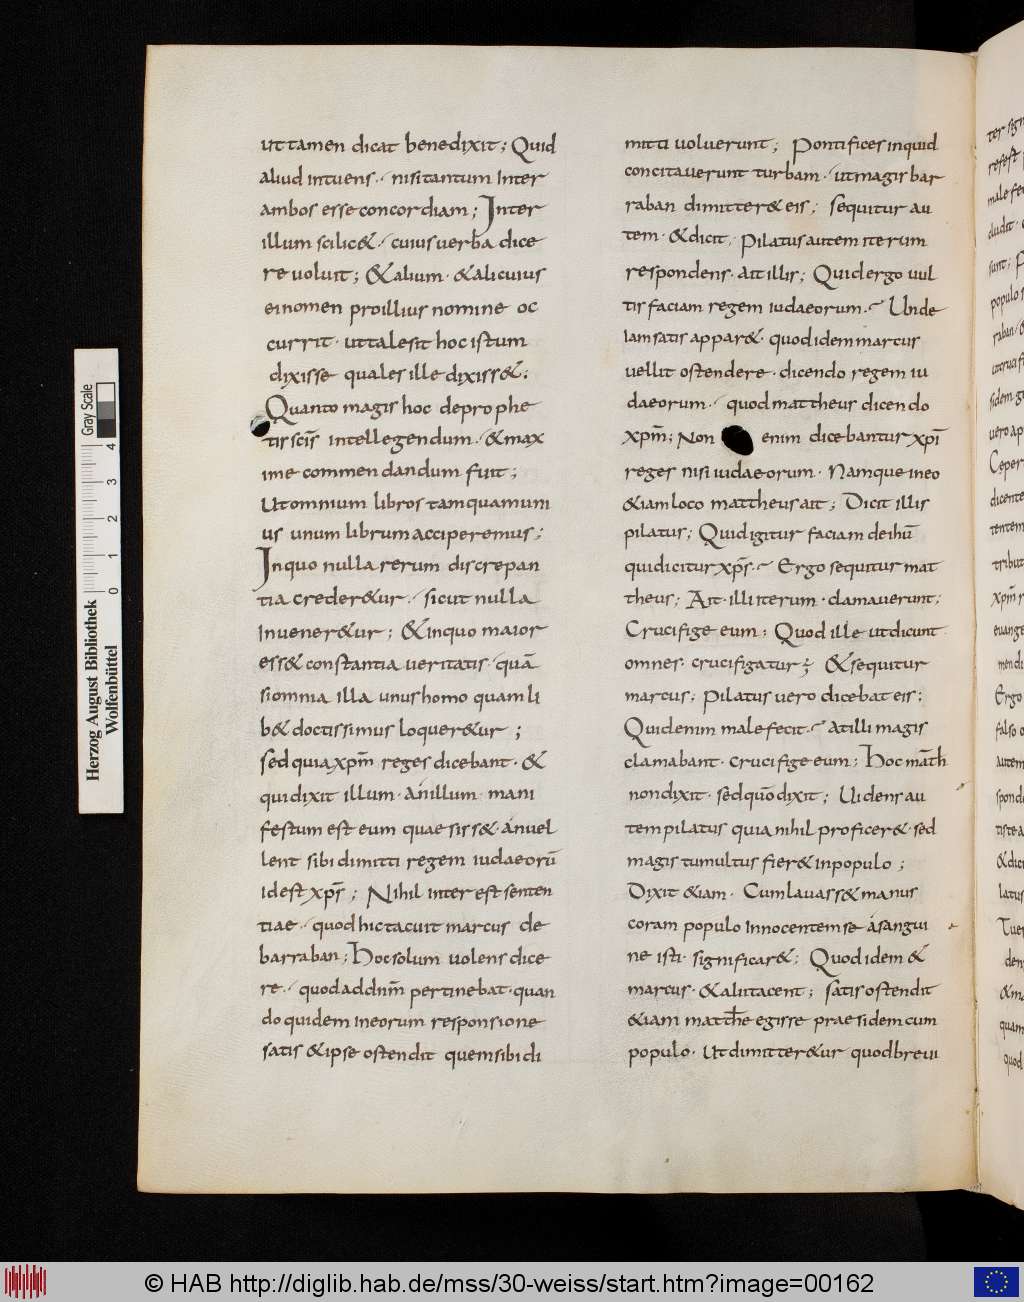 ut tamen dicat benedixit; Quid
aliud intuens. nisi tantum Inter
ambos esse concordiam; Inter
illum scilic&. cuius uerba dice
re uoluit; &alium · &alicuius
ei nomen pro illius nomine oc
currit · ut talesit hoc istum
dixisse quales ille dixiss&:
Quanto magis hoc de prophe
tis scīs intellegendum. &max
ime commendandum fuit;
Ut omnium libros tamquam uni
us unum librum acciperemus;
In quo nulla rerum discrepan
tia creder&ur. sicut nulla
Inuener&ur; &inquo maior
ess& constantia ueritatis · quā
si omnia illa unus homo quam li
b& doctissimus loquer&ur;
sed quia xpm̄ reges dicebant · &
qui dixit illum · an illum · mani
festum est eum quaesiss& · an uel
lent sibi dimitti regem iudaeorū
id est xps̄; Nihil interest senten
tiae. quod hic tacuit marcus de
barraban; Hoc solum uolens dice
re. quod ad dnm̄ pertinebat · quan
do quidem in eorum responsione
satis &ipse ostendit quem sibi di
mitti uoluerunt; Pontifices inquid
concitauerunt turbam. ut magis bar
raban dimitter& eis; sequitur au
tem · &dicit. Pilatus autem iterum
respondens. ait illis; Quid ergo uul
tis faciam regem iudaeorum. Unde
Iam satis appar& · quod idem marcus
uellit ostendere · dicendo regem iu
daeorum. quod mattheus dicendo
xpm̄; Non enim dicebantur xpī
reges nisi iudaeorum · Namque in eo
&iam loco mattheus ait; Dicit illis
pilatus; Quid igitur faciam de ihū
qui dicitur xps̄. Ergo sequitur mat
theus; Ait · illi iterum · clamauerunt;
Crucifige eum; Quod ille ut dicunt
omnes · crucifigatur; & sequitur
marcus; Pilatus uero dicebat eis:
Quid enim male fecit. At illi magis
clamabant · crucifige eum; Hoc math̄
non dixit · sed quō dixit; Uidens au
tem pilatus quia nihil proficer& · sed
magis tumultus fier& in populo;
Dixit &iam · Cum lauass& manus
coram populo Innocentem se a sangui
ne isti · significar&; Quod idem &
marcus · &alii tacent; satis ostendit
&iam matth̄e egisse praesidem cum
populo · Ut dimitter&ur quod breui
ter sign
refest
malefec
dudit ·
sunt;
populo
raban ·
utcrucif
sidem
uero ap
Ceper
dicente
tentem
tribut
xpm̄ r
euange
mendi
Ergo
falso
autem
sponde
tis te a
&dici
latus
Tuer
den
&ma
quam
quod
Herzog August Bibliothek
Wolfenbüttel
Gray Scale
0 1 2 3 4
© HAB http://diglib.hab.de/mss/30-weiss/start.htm?image=00162